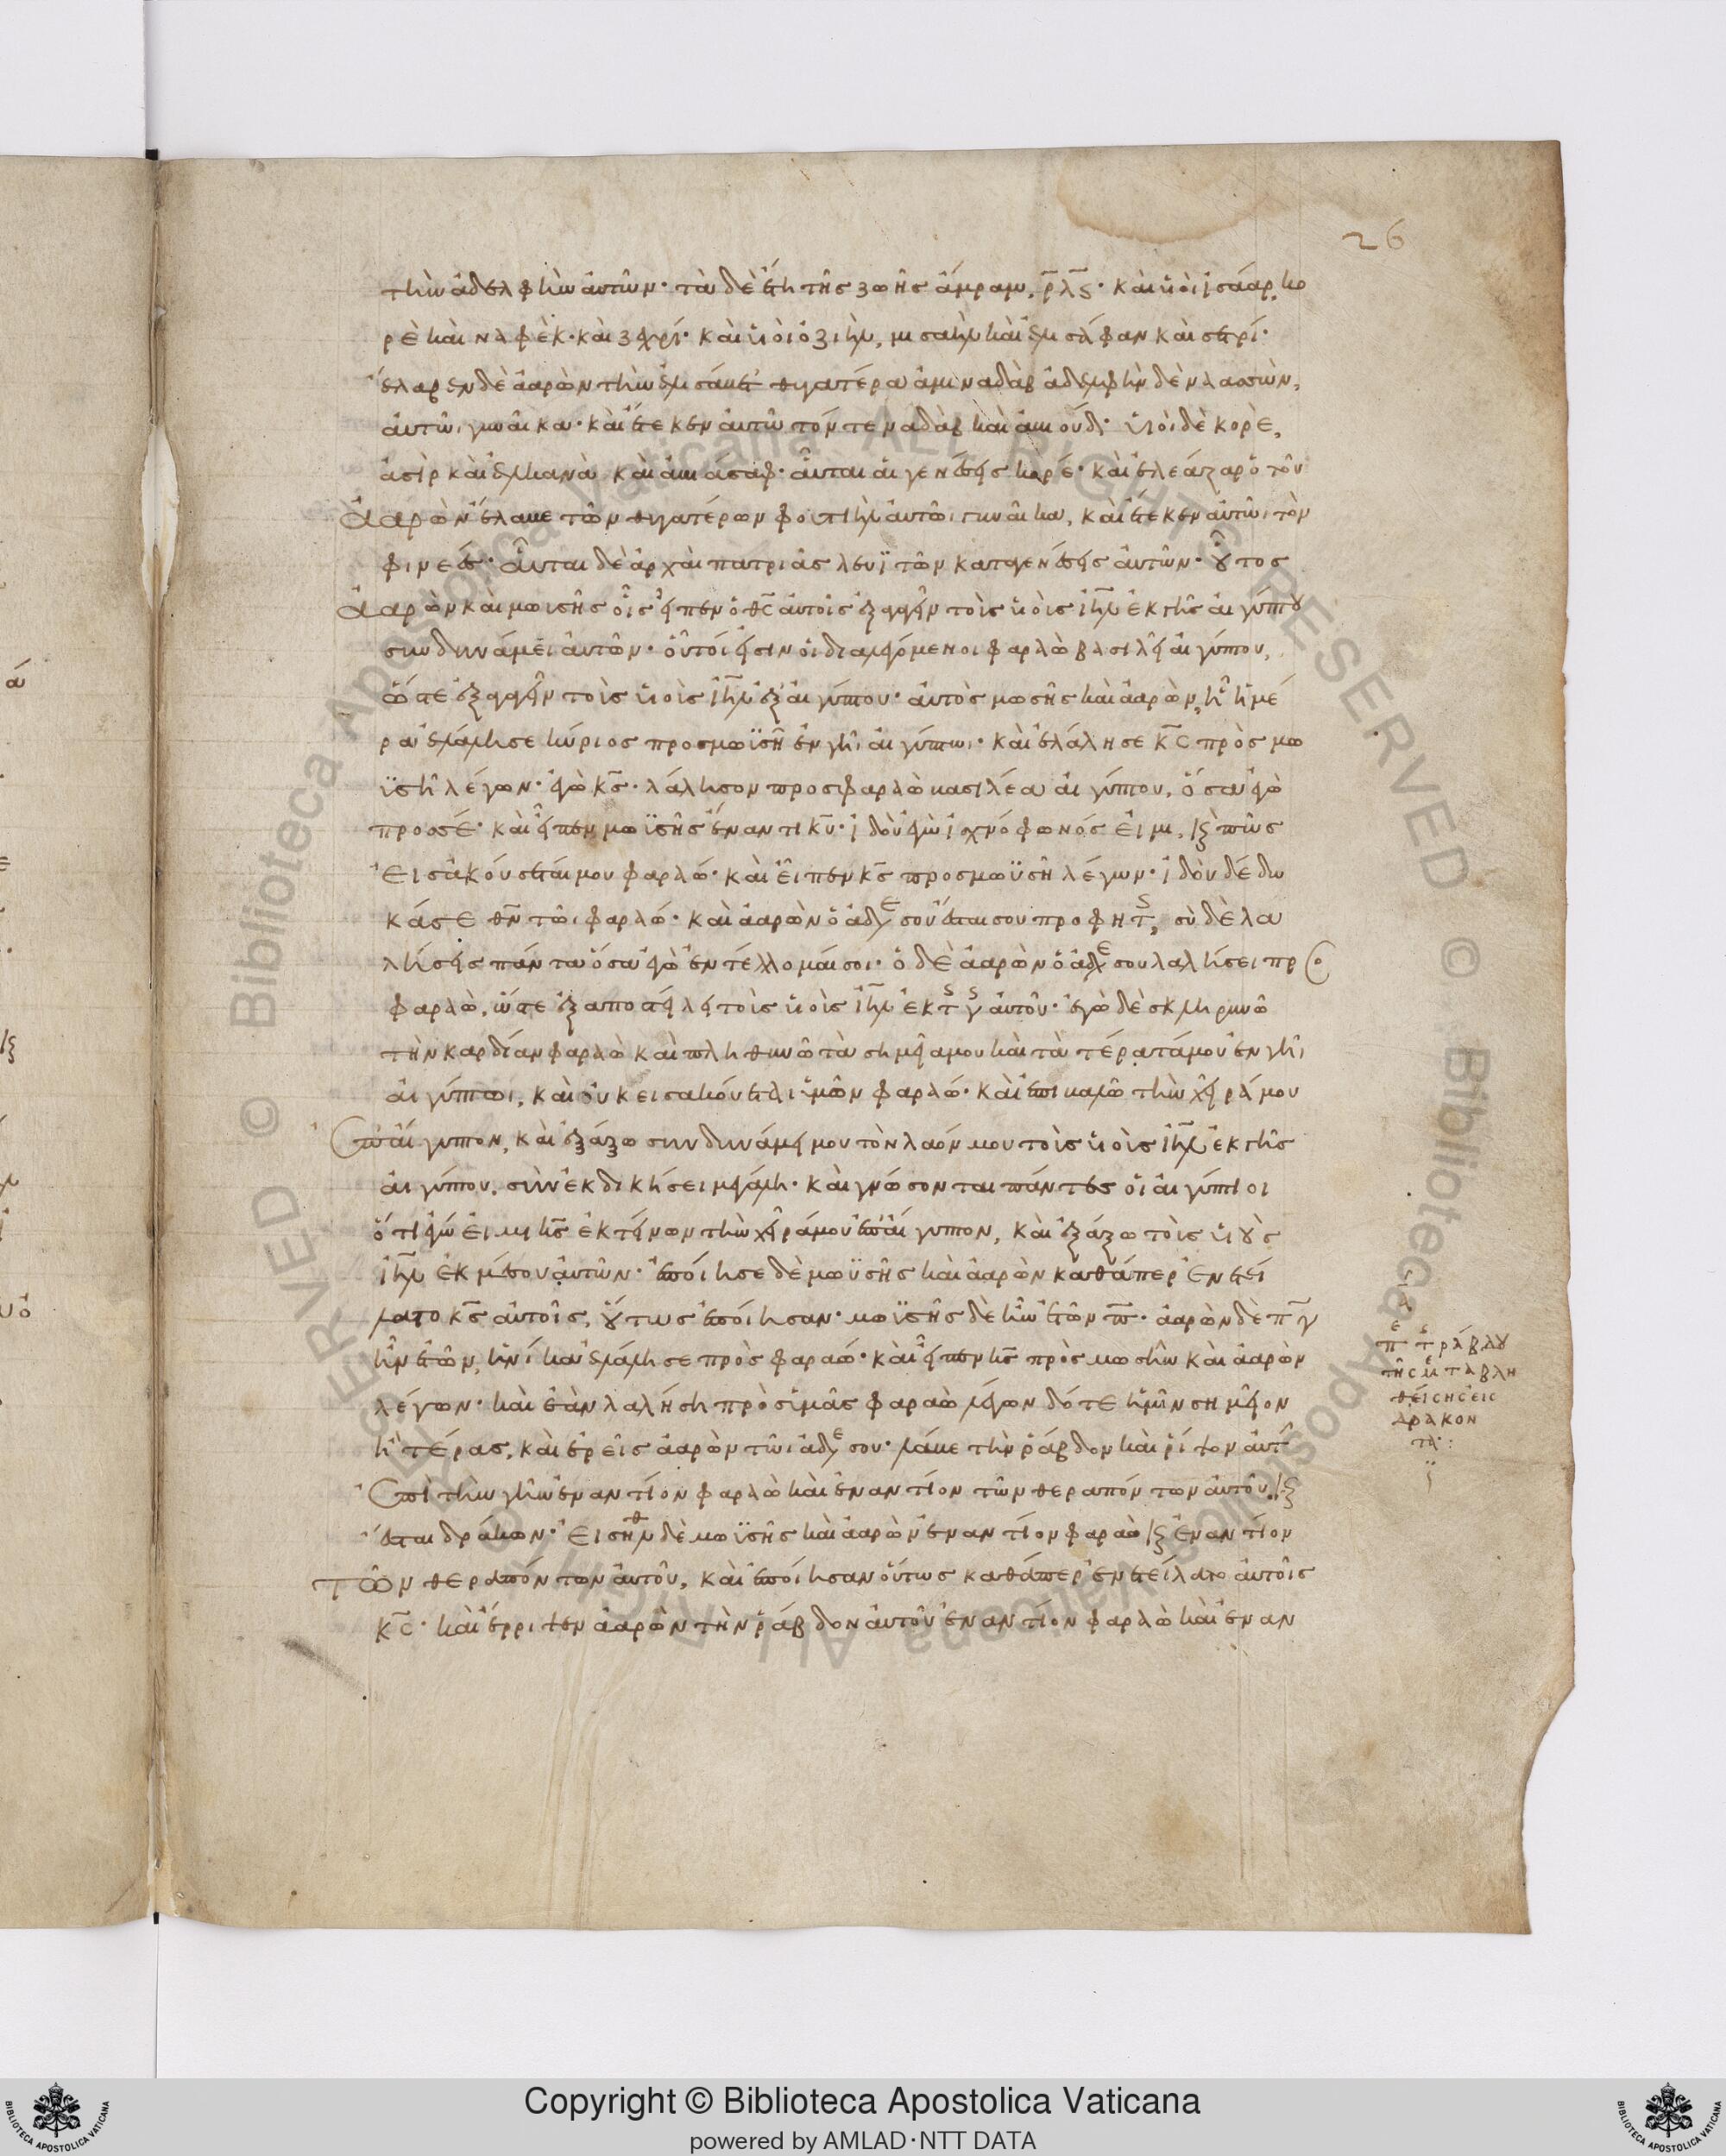 26
τὴν ἀδελφὴν αὐτῶν· τὰ δὲ ἔτη τῆς ζωῆς ἄμραμ, ρλς· καὶ υἱοὶ ἰσάαρ, κο
ρὲ καὶ ναφὲκ· καὶ ζεχρί· καὶ υἱοὶ ὀζιὴλ, μισαὴλ καὶ ἐλισάφαν καὶ σετρί·
ἔλαβεν δὲ ἀαρὼν τὴν ἐλισάβετ θυγατέρα ἀμιναδὰβ ἀδελφὴν δὲ ναασσὼν,
αὐτῶι γυναῖκα· καὶ ἔτεκεν αὐτῶ τόν τε ναδὰβ καὶ ἀβιούδ· υἱοὶ δὲ κορὲ,
ἀσὶρ καὶ ἐλκανὰ καὶ ἀβιάσαφ· αὗται αἱ γενέσεις κορέ· καὶ ἐλεάζαρ ὁ τοῦ
ἀαρὼν ἔλαβε τῶν θυγατέρων φουτιὴλ αὐτῶι γυναῖκα, καὶ ἔτεκεν αὐτῶι τὸν
φινεές· αὗται δὲ ἀρχαὶ πατριᾶς λευϊτῶν κατὰ γενέσεις αὐτῶν· οὗτος
ἀαρὼν καὶ μωισῆς οἷς εἶπεν ὁ θς αὐτοῖς ἐξαγαγεῖν τοὶς υἱοὶς ιηλ ἐκ γῆς αἰγύπτου
σὺν δυνάμει αὐτῶν· οὗτοί εἰσιν οἱ διαλεγόμενοι φαραὼ βασιλεῖ αἰγύπτου,
ὥστε ἐξαγαγεῖν τοὶς υἱοὶς ιηλ ἐξ αἰγύπτου· αὐτὸς μωσῆς καὶ ἀαρὼν, ἧ ἡμέ
ρα ἐλάλησε κύριος προς μωϊσῆ ἐν γῆ αἰγύπτωι· καὶ ἐλάλησε κς πρὸς μω
ϊσῆ λέγων· ἐγὼ κς· λάλησον προς φαραὼ βασιλέα αἰγύπτου, ὅσα ἐγὼ
προς σέ· καὶ εἶπεν μωϊσῆς ἐναντι κυ· ἰδοὺ ἐγὼ ἰσχνόφωνός εἰμι, καὶ πῶς
εἰσακούσεταί μου φαραώ· καὶ εἶπεν κς προς μωϋσῆ λέγων· ἰδοὺ δέδω
κά σε θν τῶι φαραώ· καὶ ἀαρὼν ὁ ἀδελ σοῦ ἔσται σου προφητ, σὺ δὲ λα
λήσεις πάντα ὅσα ἐγὼ ἐντέλλομαί σοι· ὁ δὲ ἀαρὼν ὁ ἀδελ σου λαλήσει πρὸ
φαραὼ, ὥστε ἐξαποστεῖλαι τοὶς υἱοὶς ιηλ ἐκ τ γ αὐτοῦ· ἐγὼ δὲ σκληρυνῶ
τὴν καρδίαν φαραὼ καὶ πληθυνῶ τὰ σημεῖά μου καὶ τὰ τέρατά μου ἐν γῆι
αἰγύπτωι, καὶ οὐκ εἰσακούσεται ὑμῶν φαραώ· καὶ ἐπιβαλῶ τὴν χεῖρά μου
ἐπ' αἴγυπτον, καὶ ἐξάξω σὺν δυνάμει μου τὸν λαόν μου τοὶς υἱοὶς ιηλ ἐκ γῆς
αἰγύπτου, σὺν ἐκδικήσει μεγάλη· καὶ γνώσονται πάντες οἱ αἰγύπτιοι
ὅτι ἐγώ εἰμι κς ἐκτείνων τὴν χεῖρά μου ἐπ' αἴγυπτον, καὶ ἐξάξω τοὶς υἱοὺς
ιηλ ἐκ μέσου αὐτῶν· ἐποίησε δὲ μωϋσῆς καὶ ἀαρὼν καθάπερ ἐνετεί
λατο κς αὐτοῖς, οὕτως ἐποίησαν· μωϊσῆς δὲ ἦν ἐτῶν π· ἀαρὼν δὲ πγ
ἦν ἐτῶν, ἡνίκα ἐλάλησε πρὸς φαραώ· καὶ εἶπεν κς πρὸς μωσῆν καὶ ἀαρὼν
λέγων· καὶ ἐὰν λαλήση πρὸς ὑμᾶς φαραὼ λέγων δότε ἡμῖν σημεῖον
ἢ τέρας, καὶ ἐρεῖς ἀαρὼν τῶι ἀδελ σου· λάβε τὴν ῥάβδον καὶ ῥίψον αὐτ
ἐπὶ τὴν γῆν ἐναντίον φαραὼ καὶ ἐναντίον τῶν θεραπόντων αὐτοῦ, καὶ
ἔσται δράκων· εἰσῆλθ δὲ μωϊσῆς καὶ ἀαρὼν ἐναντίον φαραὼ καὶ ἐναντίον
τῶν θεραπόντων αὐτοῦ, καὶ ἐποίησαν οὕτως καθάπερ ἐνετείλατο αὐτοῖς
κς· καὶ ἔρριψεν ἀαρὼν τὴν ῥάβδον αὐτοῦ ἐναντίον φαραὼ καὶ ἐναν
π τ ράβδου
τῆς μεταβλη
θείσης εἰς
δρακον
τα:
Copyright © Biblioteca Apostolica Vaticana
powered by AMLAD·NTT DATA